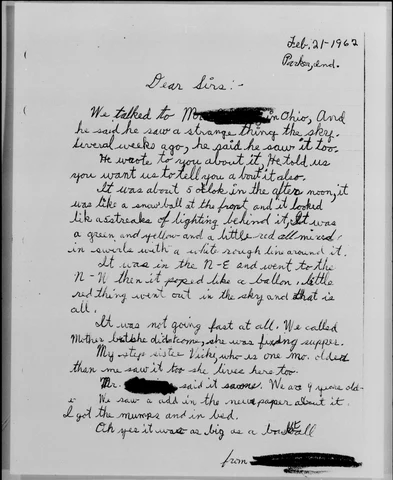 Feb. 21-1962
Parker, Ind.
Dear Sirs:-
We talked to M in Ohio, And
he said he saw a strange thing the sky.
Several weeks ago, he said he saw it too.
He wrote to you about it, He told us
you want us to tell you about it also.
It was about 5 oclok in the after noon, it
was like a snow ball at the front, and it looked
lik a streaks of lighting behind it, It was
a green and yellow and a little red all mixed
in swirls with a white rough lin around it.
It was in the N-E and went to the
N-W then it poped like a ballon, little
red thing went out in the sky and that is
all.
It was not going fast at all. We called
Mother but she didt come, she was fixing supper.
My step sister Vicki, who is one mo. older
then me saw it too she lives here too.
Mr. said it. We are 9 years old
We saw a add in the news paper about it.
I got the mumps and in bed.
Oh yes it was as big as a ball
from